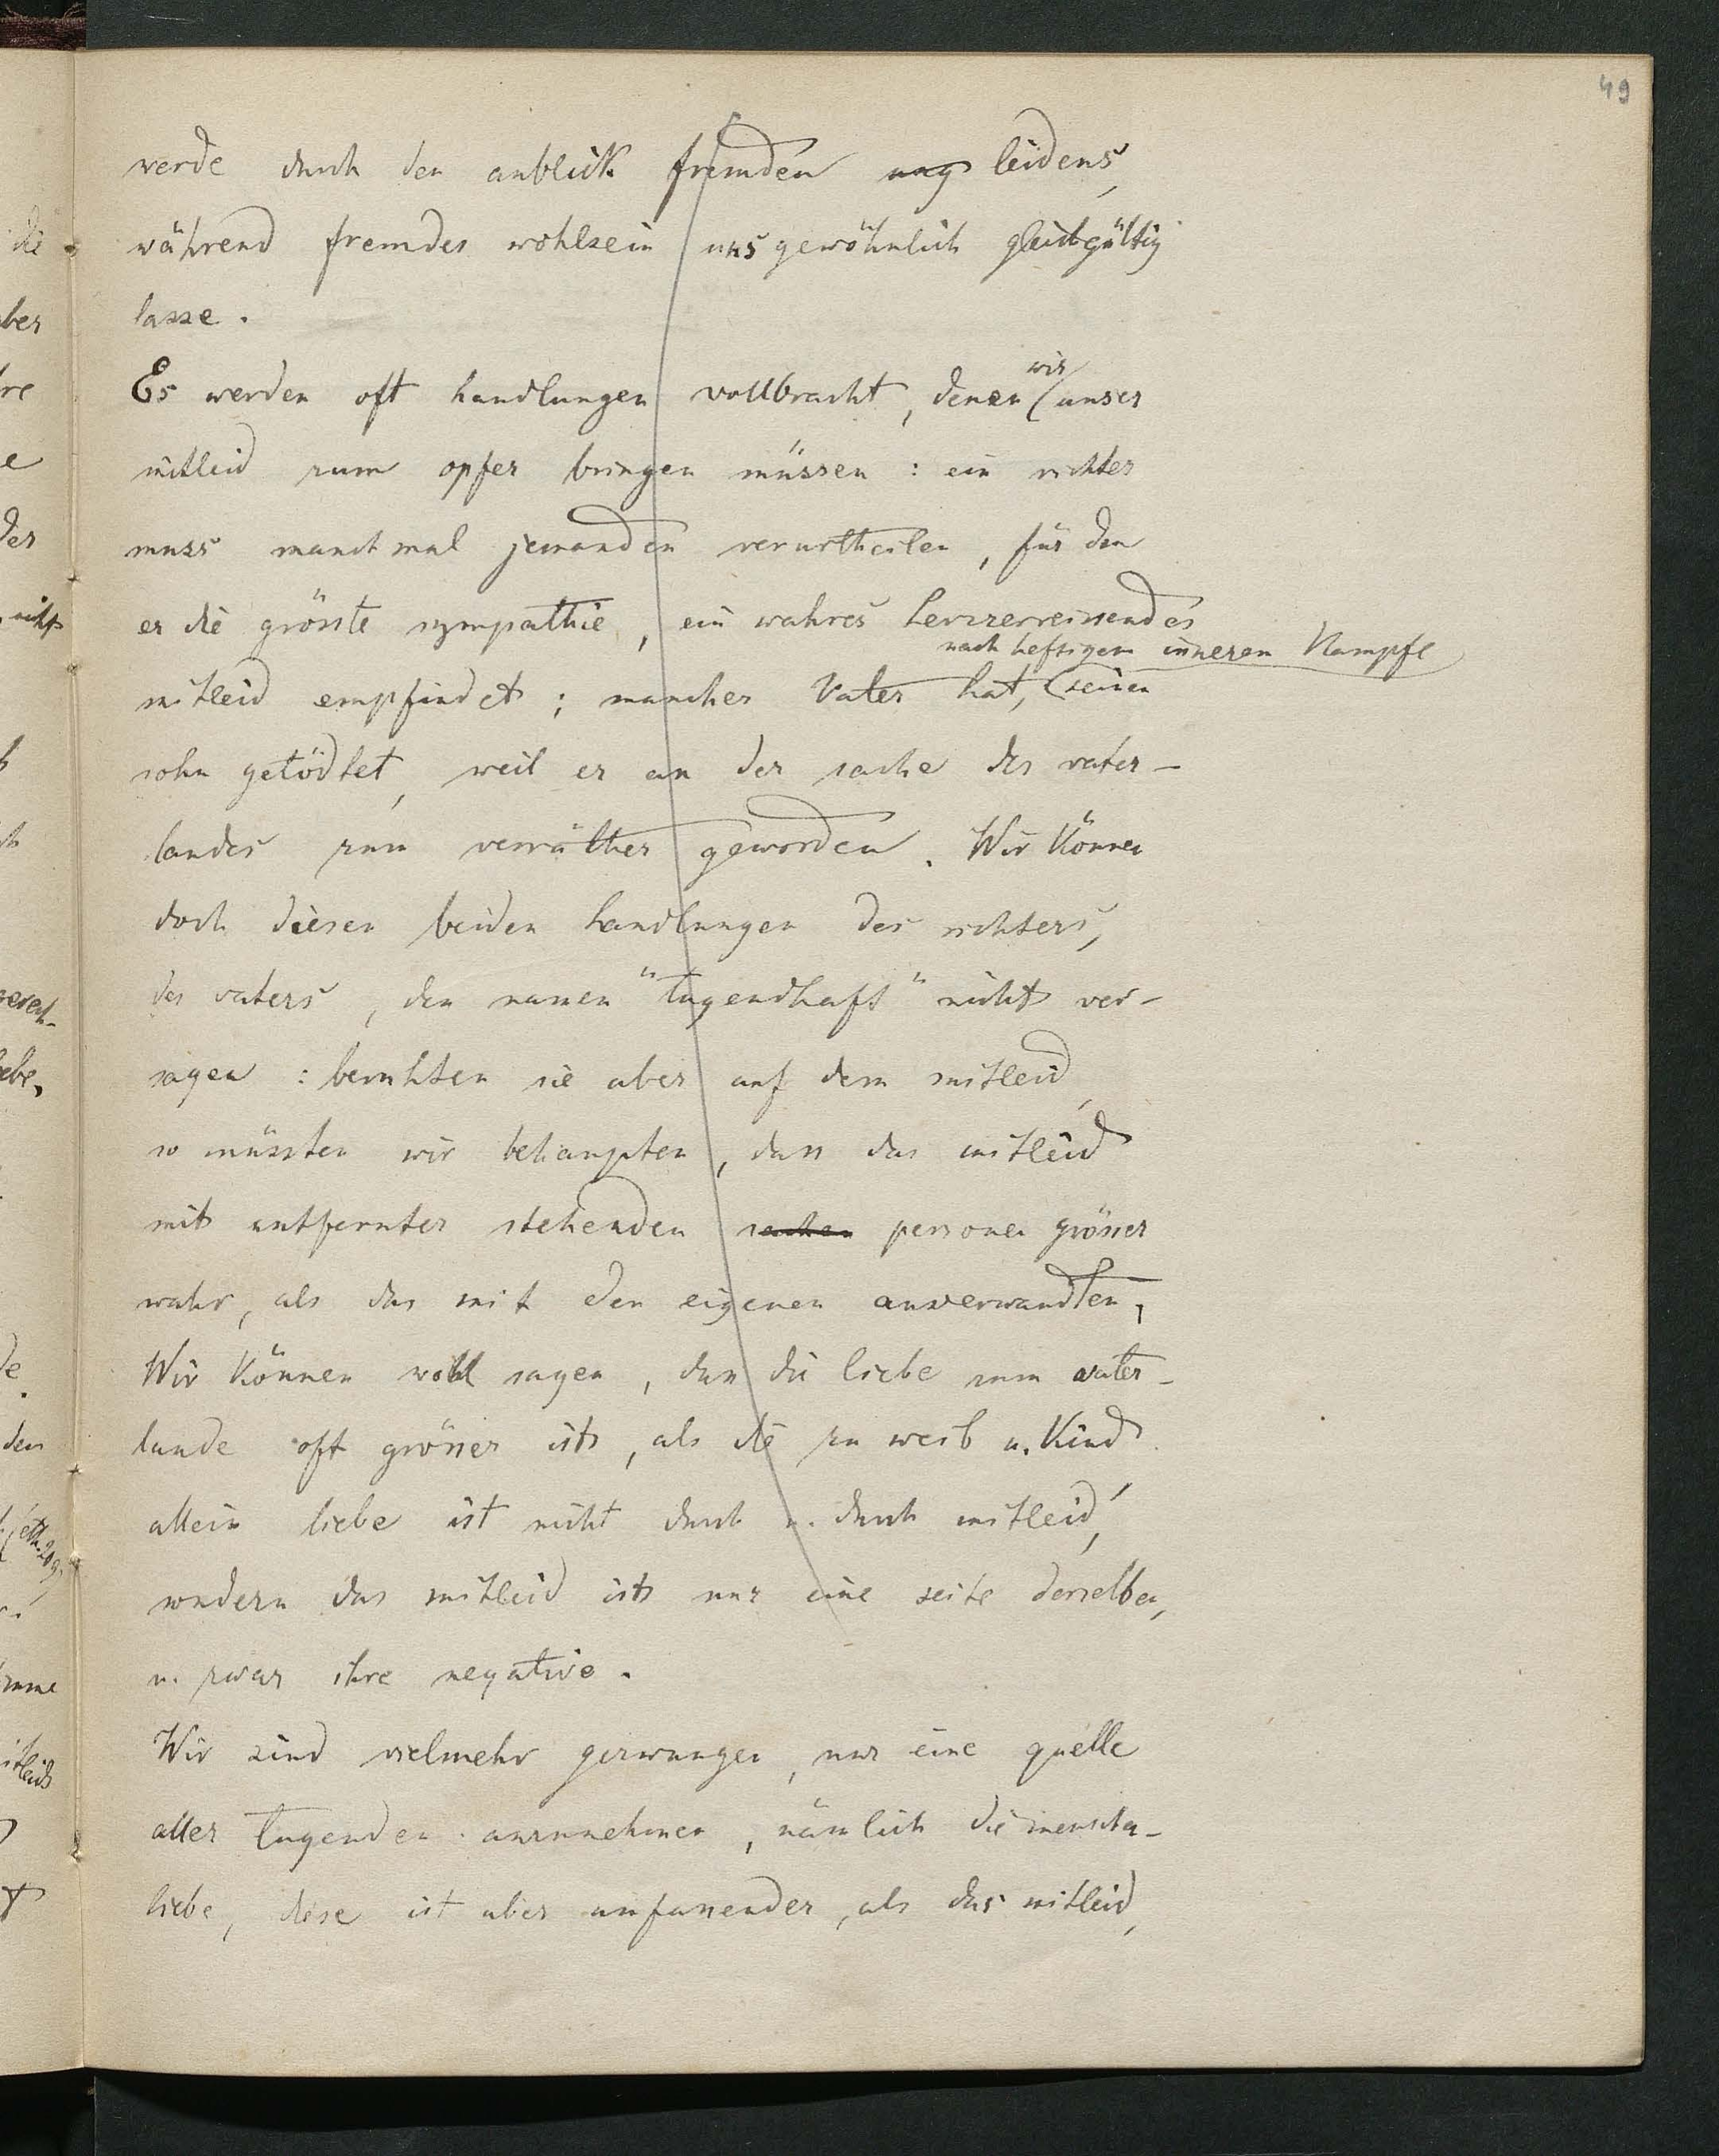 49
werde durch den anblick fremden ung leidens,
während fremdes wohlsein uns gewöhnlich gleichgültig
lasse.
Es werden oft handlungen vollbracht, denen wir unser
mitleid zum opfer bringen müssen: ein richter
muss manchmal jemanden verurtheilen, für den
er die grösste sympathie, ein wahres herzzerreissendes
nach heftigem inneren Kampfe
mitleid empfindet; mancher Vater hat, seinen
sohn getödtet, weil er an der sache des vater-
landes zum verräther geworden. Wir können
doch diesen beiden handlungen des richters,
des vaters, den namen "tugendhaft" nicht ver-
sagen: beruhten sie aber auf dem mitleid,
so müssten wir behaupten, dass das mitleid
mit entfernter stehenden sachen personen grösser
wahr, als das mit den eigenen anverwandten,
Wir können wohl sagen, dass die liebe zum vater-
lande oft grösser ist, als die zu weib u. Kind
allein liebe ist nicht durch u. durch mitleid,
sondern das mitleid ist nur eine seite derselben,
u. zwar ihre negative.
Wir sind vielmehr gezwungen, nur eine quelle
aller tugenden anzunehmen, nämlich die menschen-
liebe, diese ist aber umfassender, als das mitleid,